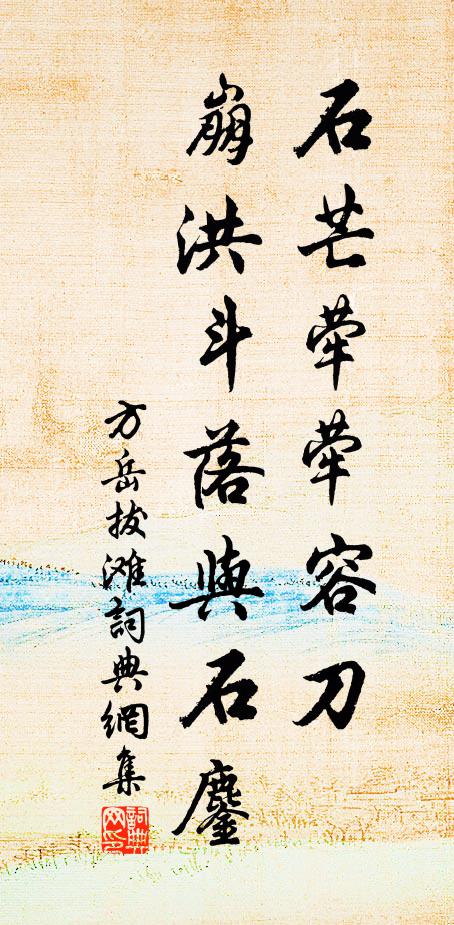 石芒荦荦容刀
崩洪斗落與石鏖
方岳拔滩詞典網集
詞典网印